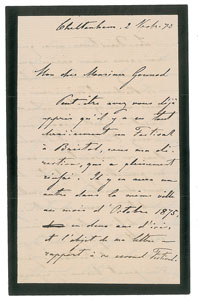 Cheltenham, 2 Nov. 73
Mon cher Monsieur Gounod
Peut être avez vous déjà
appris qu'il y a eu tout
dernièrement un Festival
à Bristol, sous ma di-
rection, qui a pleinement
réussi. Il y en aura un
autre dans la même ville
au mois d'Octobre 1875,
en deux ans d'ici,
et l'objet de ma lettre
rapport à ce second Festival.